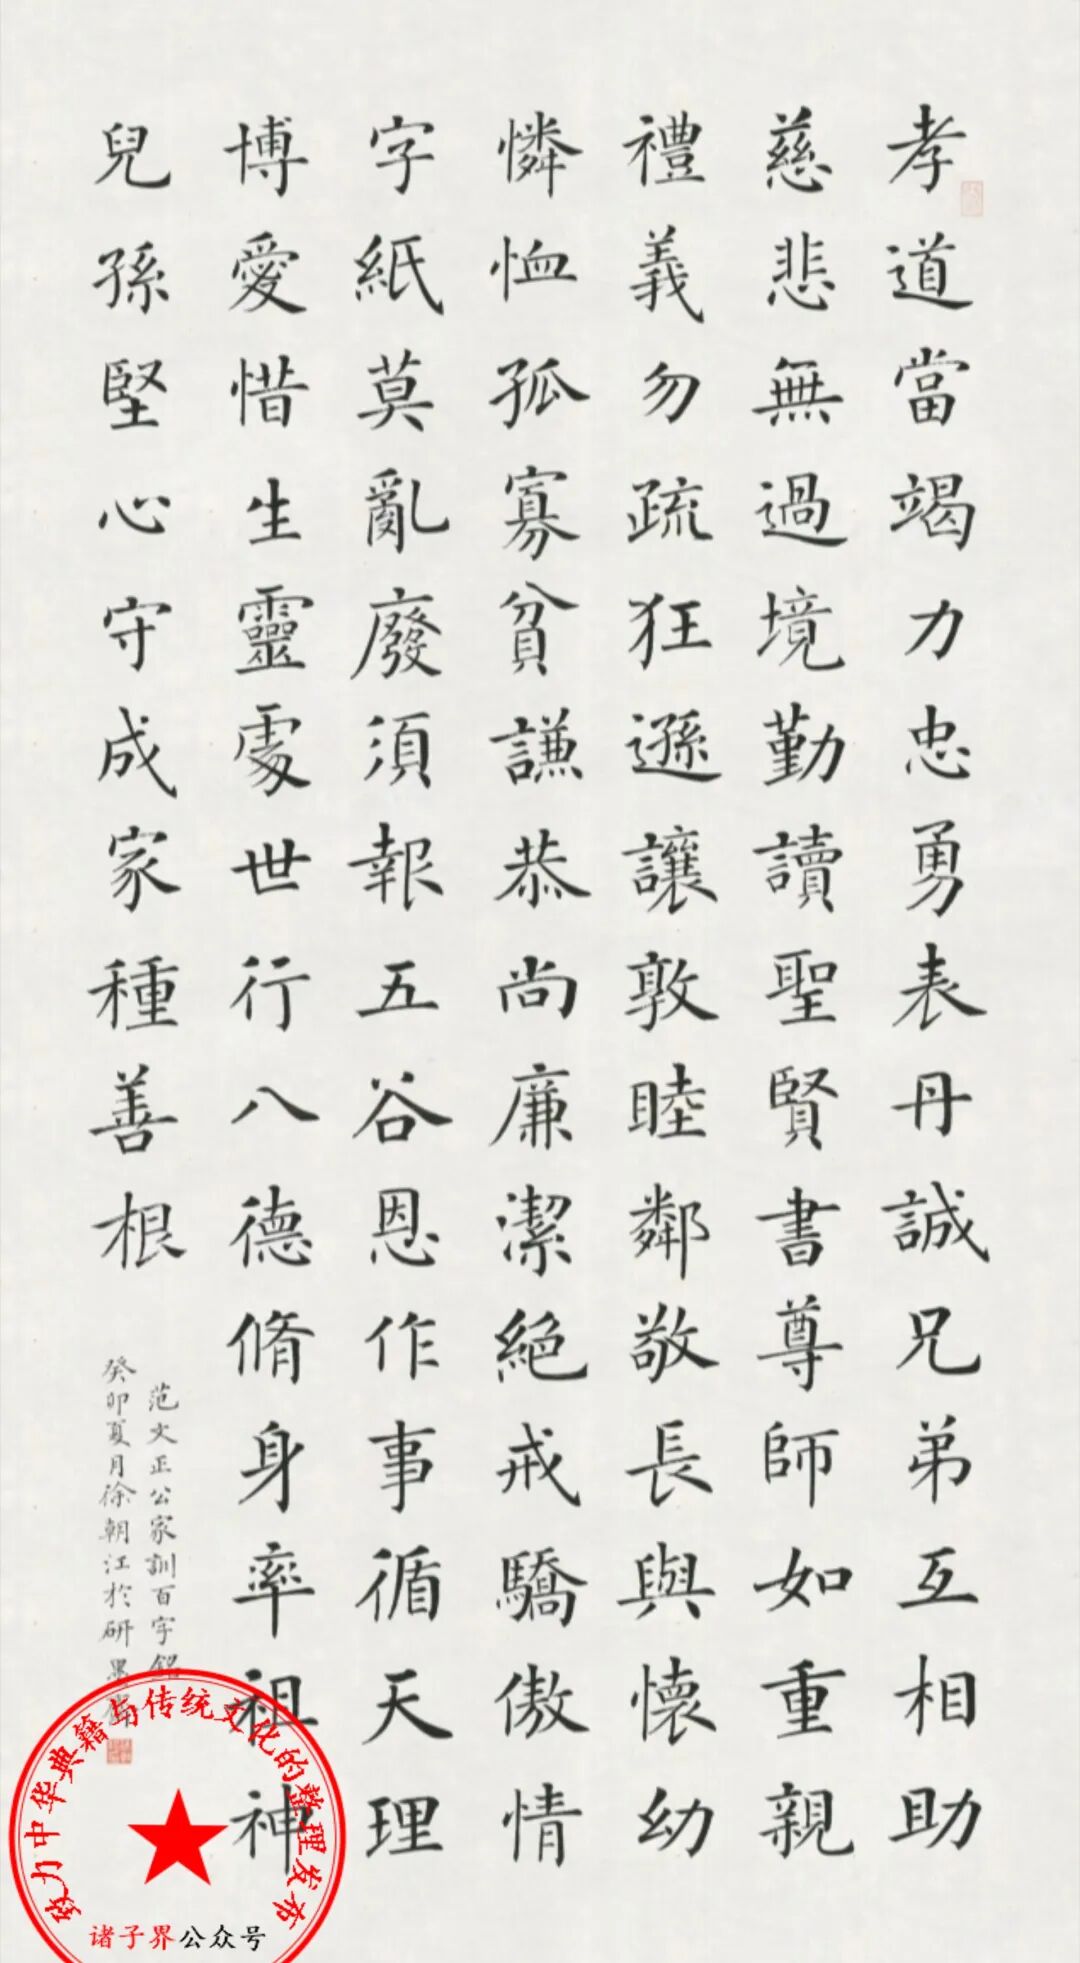 孝道當竭力忠勇表丹誠兄弟互相助
慈悲無過境勤讀聖賢書尊師如重親
禮義勿疏狂遜讓敦睦鄰敬長與懷幼
憐恤孤寡貧謙恭尚廉潔絕戒驕傲情
字紙莫亂廢須報五谷恩作事循天理
博愛惜生靈處世行八德脩身率祖神
兒孫堅心守成家種善根
范文正公家訓百字銘
癸卯夏月徐朝江於研墨
致力中华典籍与传统文化的整理发布
诸子界公众号